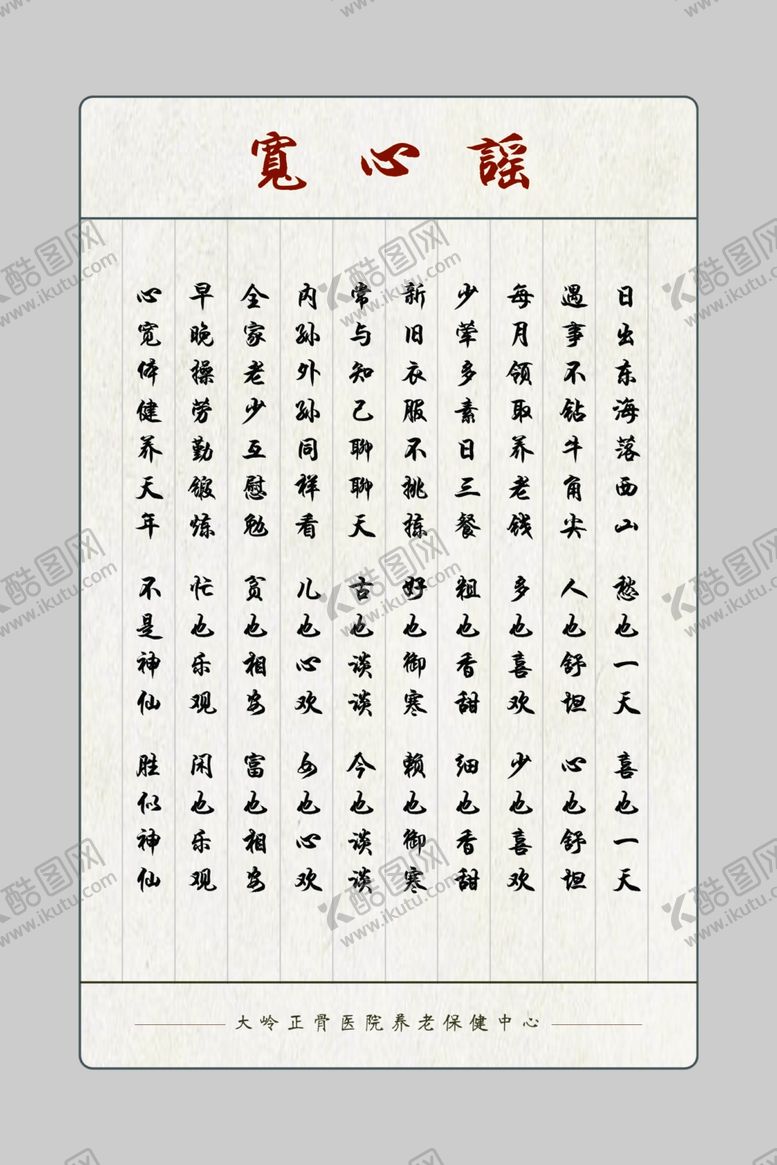 寬心謡
日出东海落西山 愁也一天 喜也一天
遇事不钻牛角尖 人也舒坦 心也舒坦
每月领取养老钱 多也喜欢 少也喜欢
少荤多素日三餐 粗也香甜 细也香甜
新旧衣服不挑拣 好也御寒 赖也御寒
常与知己聊聊天 古也谈谈 今也谈谈
内孙外孙同样看 儿也心欢 女也心欢
全家老少互慰勉 贫也相安 富也相安
早晚操劳勤锻炼 忙也乐观 闲也乐观
心宽体健养天年 不是神仙 胜似神仙
大岭正骨医院养老保健中心
酷图网
www.ikutu.com